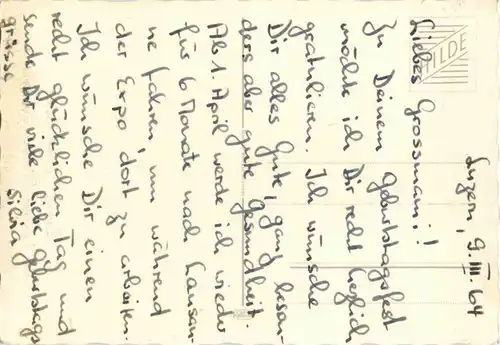 Luzern, 9. III. 64
HILDE
Liebes Grossmami!
Zu Deinem Geburtstagsfest
möchte ich Dir recht herzlich
gratulieren. Ich wünsche
Dir alles Gute, ganz beson-
ders aber gute Gesundheit.
Ab 1. April werde ich wieder
für 6 Monate nach Lausan-
ne fahren, um während
der Expo dort zu arbeiten.
Ich wünsche Dir einen
recht glücklichen Tag und
sende Dir viele liebe Geburtstags
grüsse
Silvia